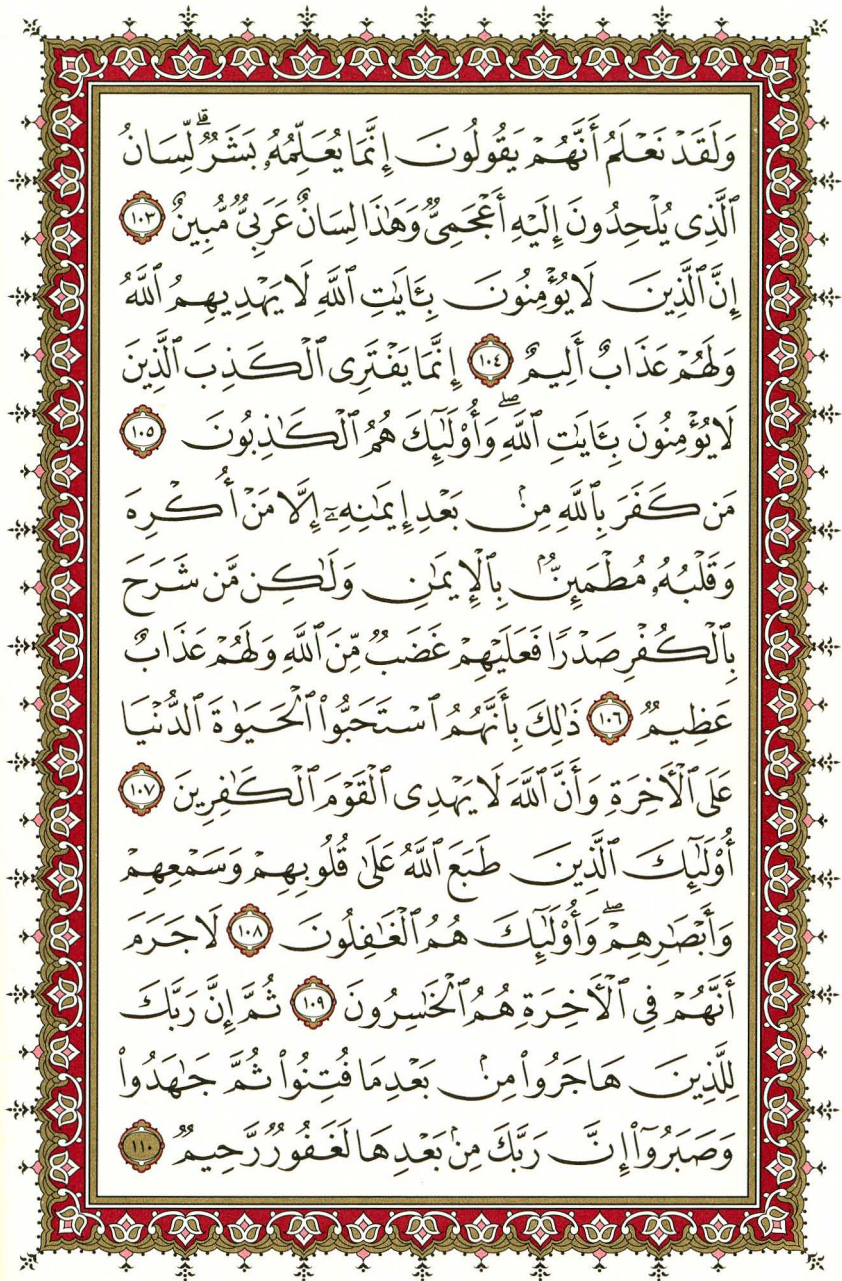 وَلَقَدْ نَعْلَمُ أَنَّهُمْ يَقُولُونَ إِنَّمَا يُعَلِّمُهُۥ بَشَرٌۗ لِّسَانُ
ٱلَّذِى يُلْحِدُونَ إِلَيْهِ أَعْجَمِىٌّ وَهَٰذَا لِسَانٌ عَرَبِىٌّ مُّبِينٌ ١٠٣
إِنَّ ٱلَّذِينَ لَا يُؤْمِنُونَ بِـَٔايَٰتِ ٱللَّهِ لَا يَهْدِيهِمُ ٱللَّهُ
وَلَهُمْ عَذَابٌ أَلِيمٌ ١٠٤ إِنَّمَا يَفْتَرِى ٱلْكَذِبَ ٱلَّذِينَ
لَا يُؤْمِنُونَ بِـَٔايَٰتِ ٱللَّهِۖ وَأُو۟لَٰٓئِكَ هُمُ ٱلْكَٰذِبُونَ ١٠٥
مَن كَفَرَ بِٱللَّهِ مِنۢ بَعْدِ إِيمَٰنِهِۦٓ إِلَّا مَنْ أُكْرِهَ
وَقَلْبُهُۥ مُطْمَئِنٌّۢ بِٱلْإِيمَٰنِ وَلَٰكِن مَّن شَرَحَ
بِٱلْكُفْرِ صَدْرًا فَعَلَيْهِمْ غَضَبٌ مِّنَ ٱللَّهِ وَلَهُمْ عَذَابٌ
عَظِيمٌ ١٠٦ ذَٰلِكَ بِأَنَّهُمُ ٱسْتَحَبُّوا۟ ٱلْحَيَوٰةَ ٱلدُّنْيَا
عَلَى ٱلْأَخِرَةِ وَأَنَّ ٱللَّهَ لَا يَهْدِى ٱلْقَوْمَ ٱلْكَٰفِرِينَ ١٠٧
أُو۟لَٰٓئِكَ ٱلَّذِينَ طَبَعَ ٱللَّهُ عَلَىٰ قُلُوبِهِمْ وَسَمْعِهِمْ
وَأَبْصَٰرِهِمْۖ وَأُو۟لَٰٓئِكَ هُمُ ٱلْغَٰفِلُونَ ١٠٨ لَا جَرَمَ
أَنَّهُمْ فِى ٱلْأَخِرَةِ هُمُ ٱلْخَٰسِرُونَ ١٠٩ ثُمَّ إِنَّ رَبَّكَ
لِلَّذِينَ هَاجَرُوا۟ مِنۢ بَعْدِ مَا فُتِنُوا۟ ثُمَّ جَٰهَدُوا۟
وَصَبَرُوٓا۟ إِنَّ رَبَّكَ مِنۢ بَعْدِهَا لَغَفُورٌ رَّحِيمٌ ١١٠